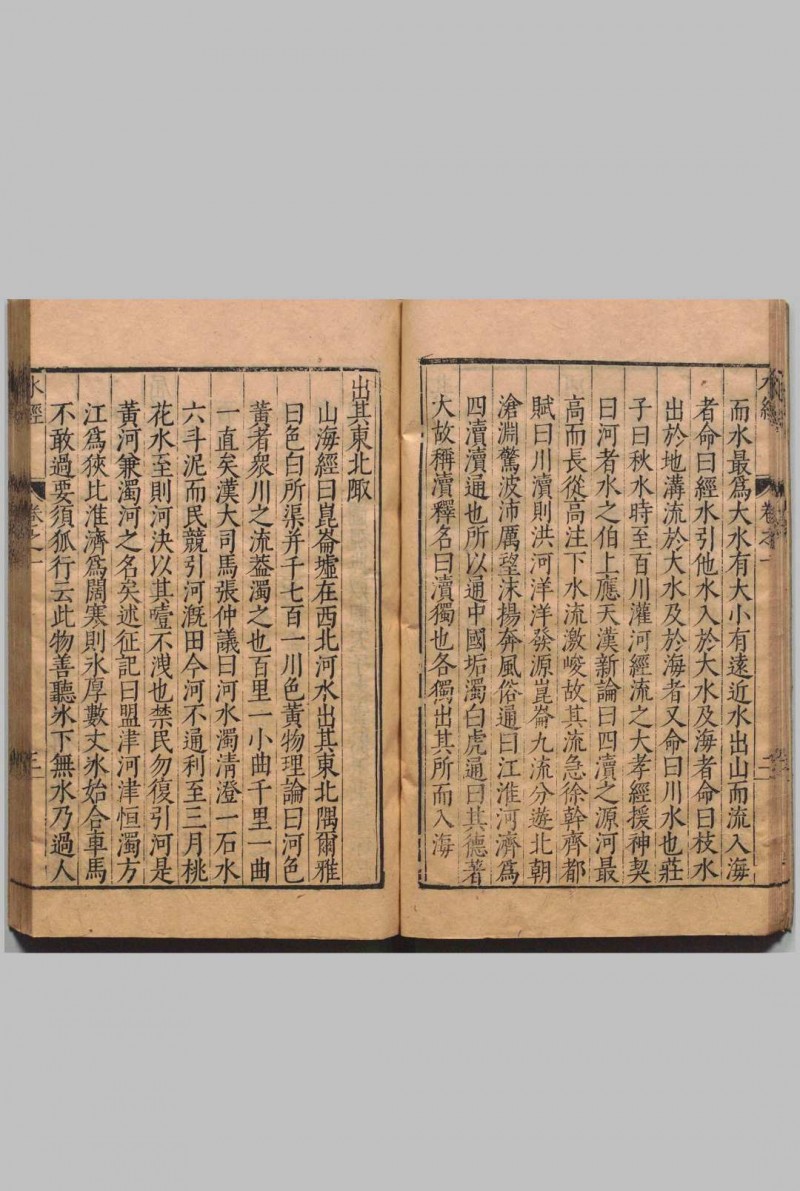 水經
卷之一
二
而水最爲大水有大小有遠近水出山而流入海
者命曰經水引他水入於大水及海者命曰枝水
出於地溝流於大水及於海者又命曰川水也莊
子曰秋水時至百川灌河經流之大孝經援神契
曰河者水之伯上應天漢新論曰四瀆之源河最
高而長從高注下水流激峻故其流急徐幹齊都
賦曰川瀆則洪河洋洋發源崑崙九流分遊北朝
滄淵驚波沛厲望沫揚奔風俗通曰江淮河濟爲
四瀆瀆通也所以通中國垢濁白虎通曰其德著
大故稱瀆釋名曰瀆獨也各獨出其所而入海
出其東北陬
山海經曰崑崙墟在西北河水出其東北隅爾雅
曰色白所渠并千七百一川色黃物理論曰河色
黃者衆川之流葢濁之也百里一小曲千里一曲
一直矣漢大司馬張仲議曰河水濁淸澄一石水
六斗泥而民競引河漑田今河不通利至三月桃
花水至則河決以其噎不洩也禁民勿復引河是
黃河兼濁河之名矣述征記曰盟津河津恒濁方
江爲狹比淮濟爲闊寒則氷厚數丈氷始合車馬
不敢過要須狐行云此物善聽氷下無水乃過人
水經
卷之一